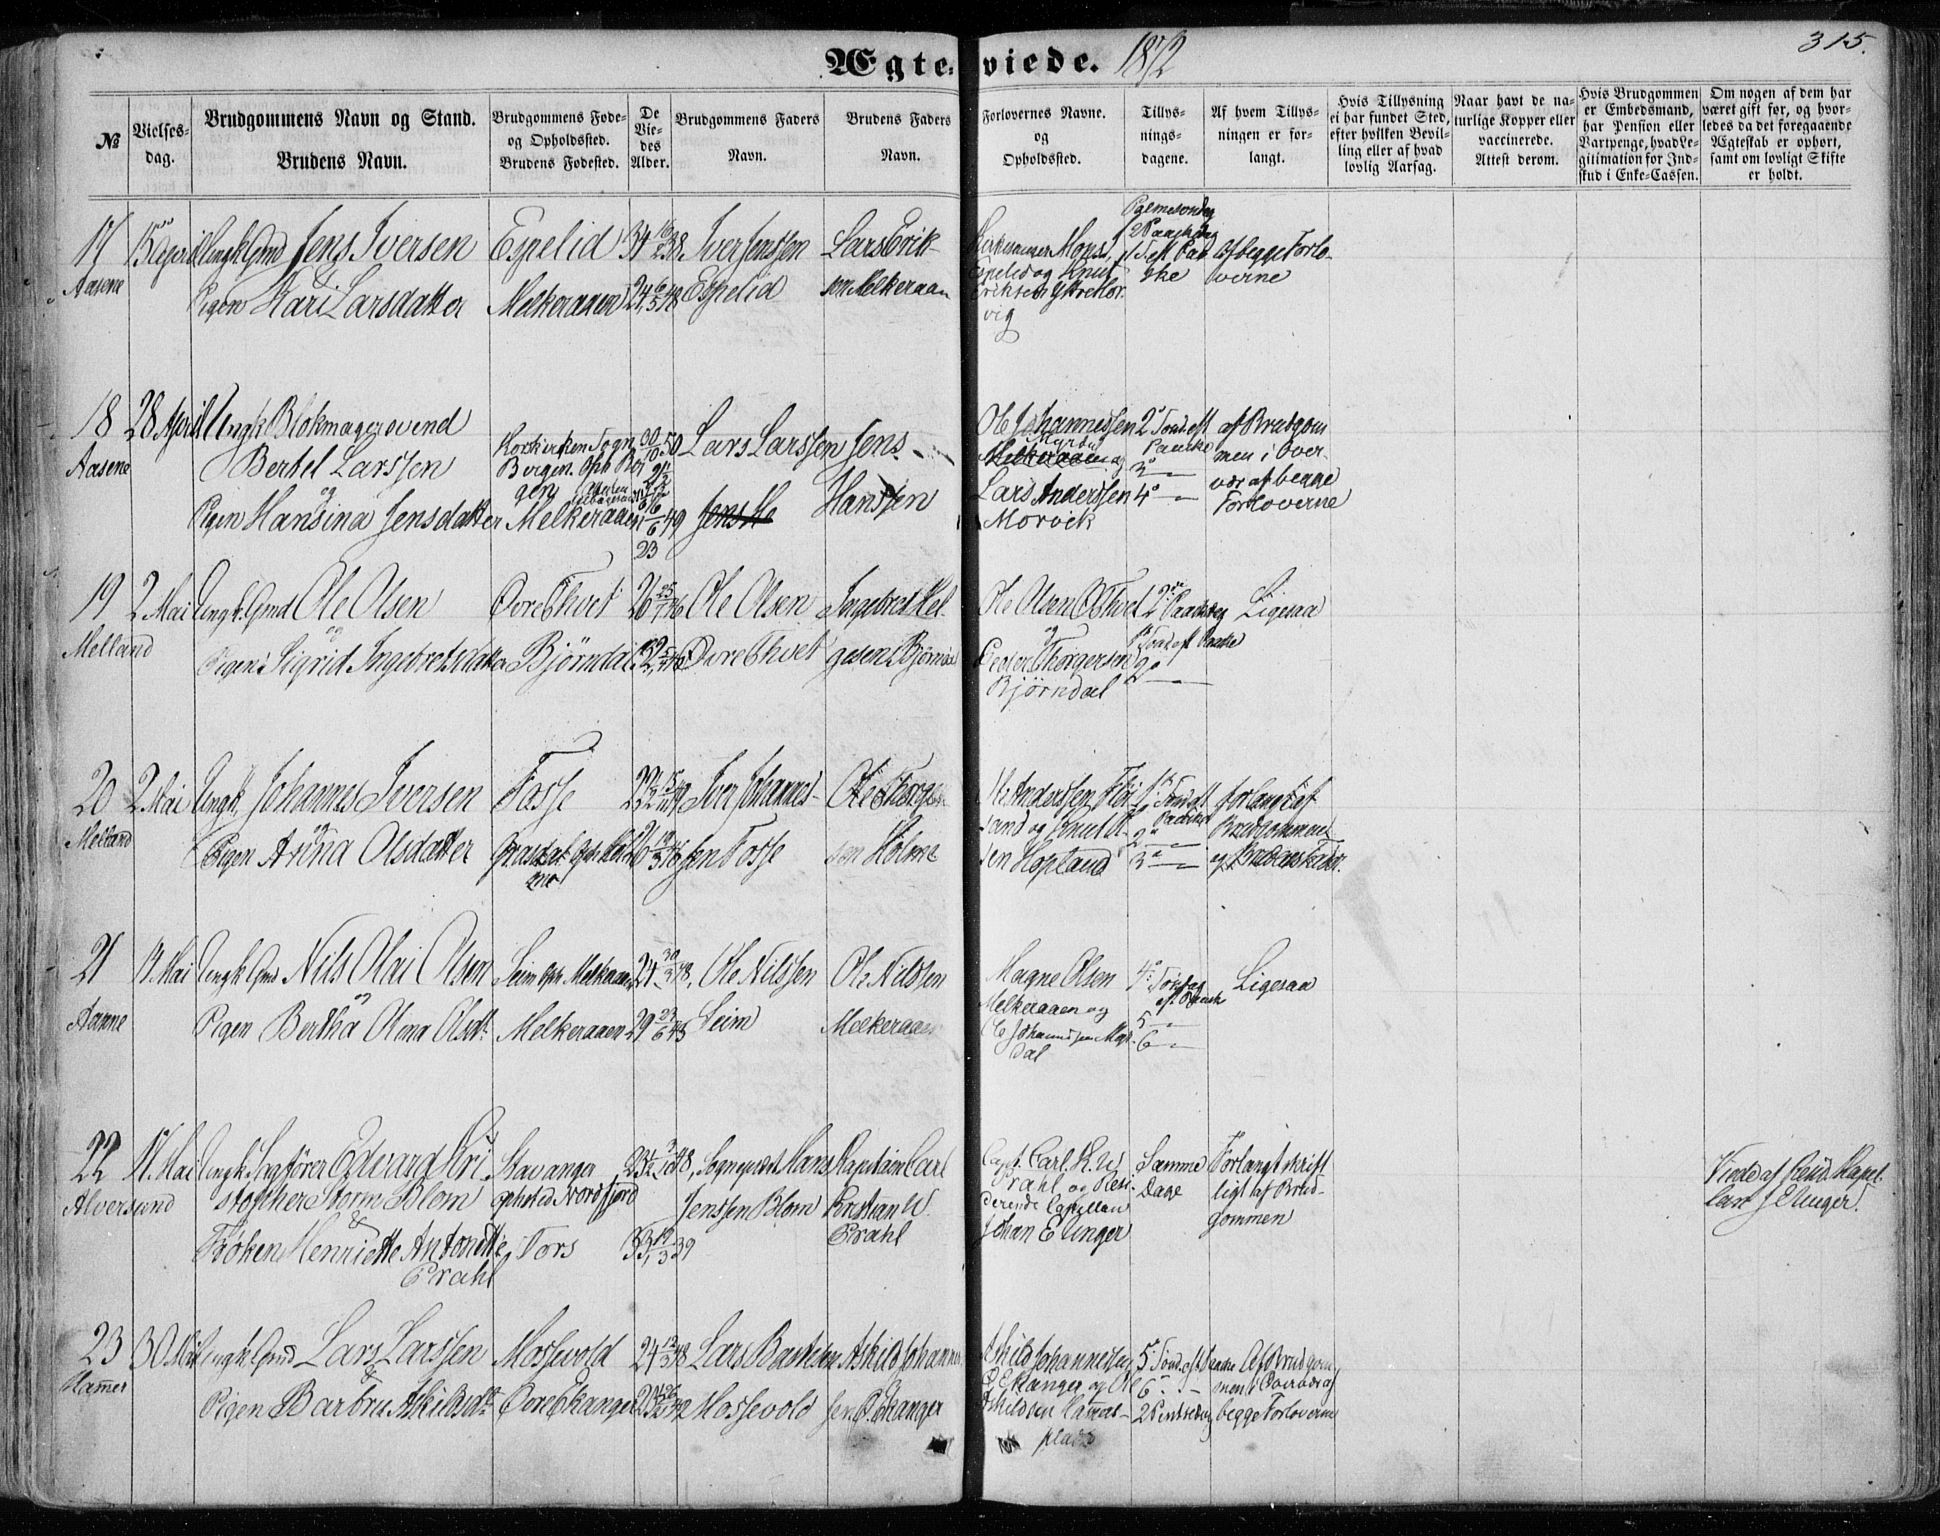 Ægteviede. 1872
315.
№
Vielses-
dag.
Brudgommens Navn og Stand.
Brudens Navn.
Brudgommens Føde-
og Opholdssted.
Brudens Fødested.
De
Vie-
des
Alder.
Brudgommens Faders
Navn.
Brudens Faders
Navn.
Forlovernes Navne.
og
Opholdssted.
Tillys-
nings-
dagene.
Af hvem Tillys-
ningen er for-
langt.
Hvis Tillysning
ei har fundet Sted,
efter hvilken Bevil-
ling eller af hvad
lovlig Aarsag.
Naar havt de na-
turlige Kopper eller
vaccinerede.
Attest derom.
Hvis Brudgommen
er Embedsmand,
har Pension eller
Vartpenge, hvad Le-
gitimation for Ind-
skud i Enke-Cassen.
Om nogen af dem har
været gift før, og hvor-
ledes da det foregaaende
Ægteskab er ophørt,
samt om lovligt Skifte
er holdt.
17
Aasene
15 April
Ungk Gmd Jens Iversen
&
Pigen Kari Larsdatter
Espelid
Melkeraaen
34
24
Iver Jenssen
Espelid
Lars Erik-
sen Melkeraaen
Kirkesanger Mons
Espelid og Knut
Eriksen Ytre Mor-
vig
Palmesøndag
2 Paaskedag
1 S. eft Paa
ske
Af begge Forlo-
verne
18
Aasene
28 April
Ungk Blokmagersvend
Bertel Larssen
og
Pigen Hansina Jensdatter
Korskirkens Sogn
Bergen. Oph Ber
gen
Melkeraaen
30/10 50
21 1/2
6/6 49
23
Lars Larssen
Jens
Hanssen
Ole Johannessen
Melkeraaen og
Lars Anderssen
Morvik
2 Sønd. eft
Paaske
3
4
af Brudgom
men i Over-
vær af begge
Forloverne
19
Melland
2 Mai
Ungk. Gmd Ole Olsen
og
Pigen Sigrid Ingebretsdatter
Øvre Tveit
Bjørndal
26
Ole Olsen
Øvre Tveit
Ingebret Hel-
gesen Bjørndal
Ole Olsen Ø Tvet
og
Peder Thorgersen
Bjørndal
2 Paaskedag
1 Sønd eft Paaske
2
Ligesaa
20
Melland
2 Mai
Ungk. Johannes Iversen
og
Pigen Anna Olsdatter
Fosse
Iver Johannes-
sen Fosse
Ole Thorger-
sen Holme
Ole Anderssen Flöi
sand og Knut K.
sen Hopland
1 Sønd eft
Paaske
2
3
forlangt af
Brudgommen
og Brudens Fader.
21
Aasene
Mai
Ungk Gmd Nils Olai Olsen
og
Pigen Bertha Olina Olsdr.
Seim Oph Melkeraaen
Melkeraaen
24 30/3 48,
29
Ole Nilssen
Seim
Ole Nilssen
Melkeraaen
Magne Olsen
Melkeraaen og
Ole Johannessen Mjøs
dal
4 Søndag
eft. Paaske
5
6
Ligesaa
22
Alversund
Mai
Ungk. Sagfører Edvard Kri-
stopher Storm Blom
&
Frøken Henriette Antonette
Prahl
Stavanger
opholds. Nordfjord
Fors
33, 3 39
Sogneprest Hans
Jenssen Blom
Kapitain Carl
Kristian W.
Prahl
Capt. Carl. K. W.
Prahl og Resi-
derende Capellan
Johan E Unger
Samme
Dage
Forlangt skrift
ligt af Brud-
gommen
Viede af Resid. Kapel-
lan J. E Unger.
23
Hamer
30 Mai
Ungk. Gmd Lars Larssen
&
Pigen Barbru Askildsdtr.
Mossevold
Øvre Ekanger
24
Lars Bastesen
Mossevold
Askild Johannes-
sen Ø. Ekanger
Askild Johannessen
Ø Ekanger og Ole
Askildsen Hamers-
plads
5 Sønd. eft Paaske
6
2 Pintsedag
Af Brudgom
men i Overvær af
begge Forloverne